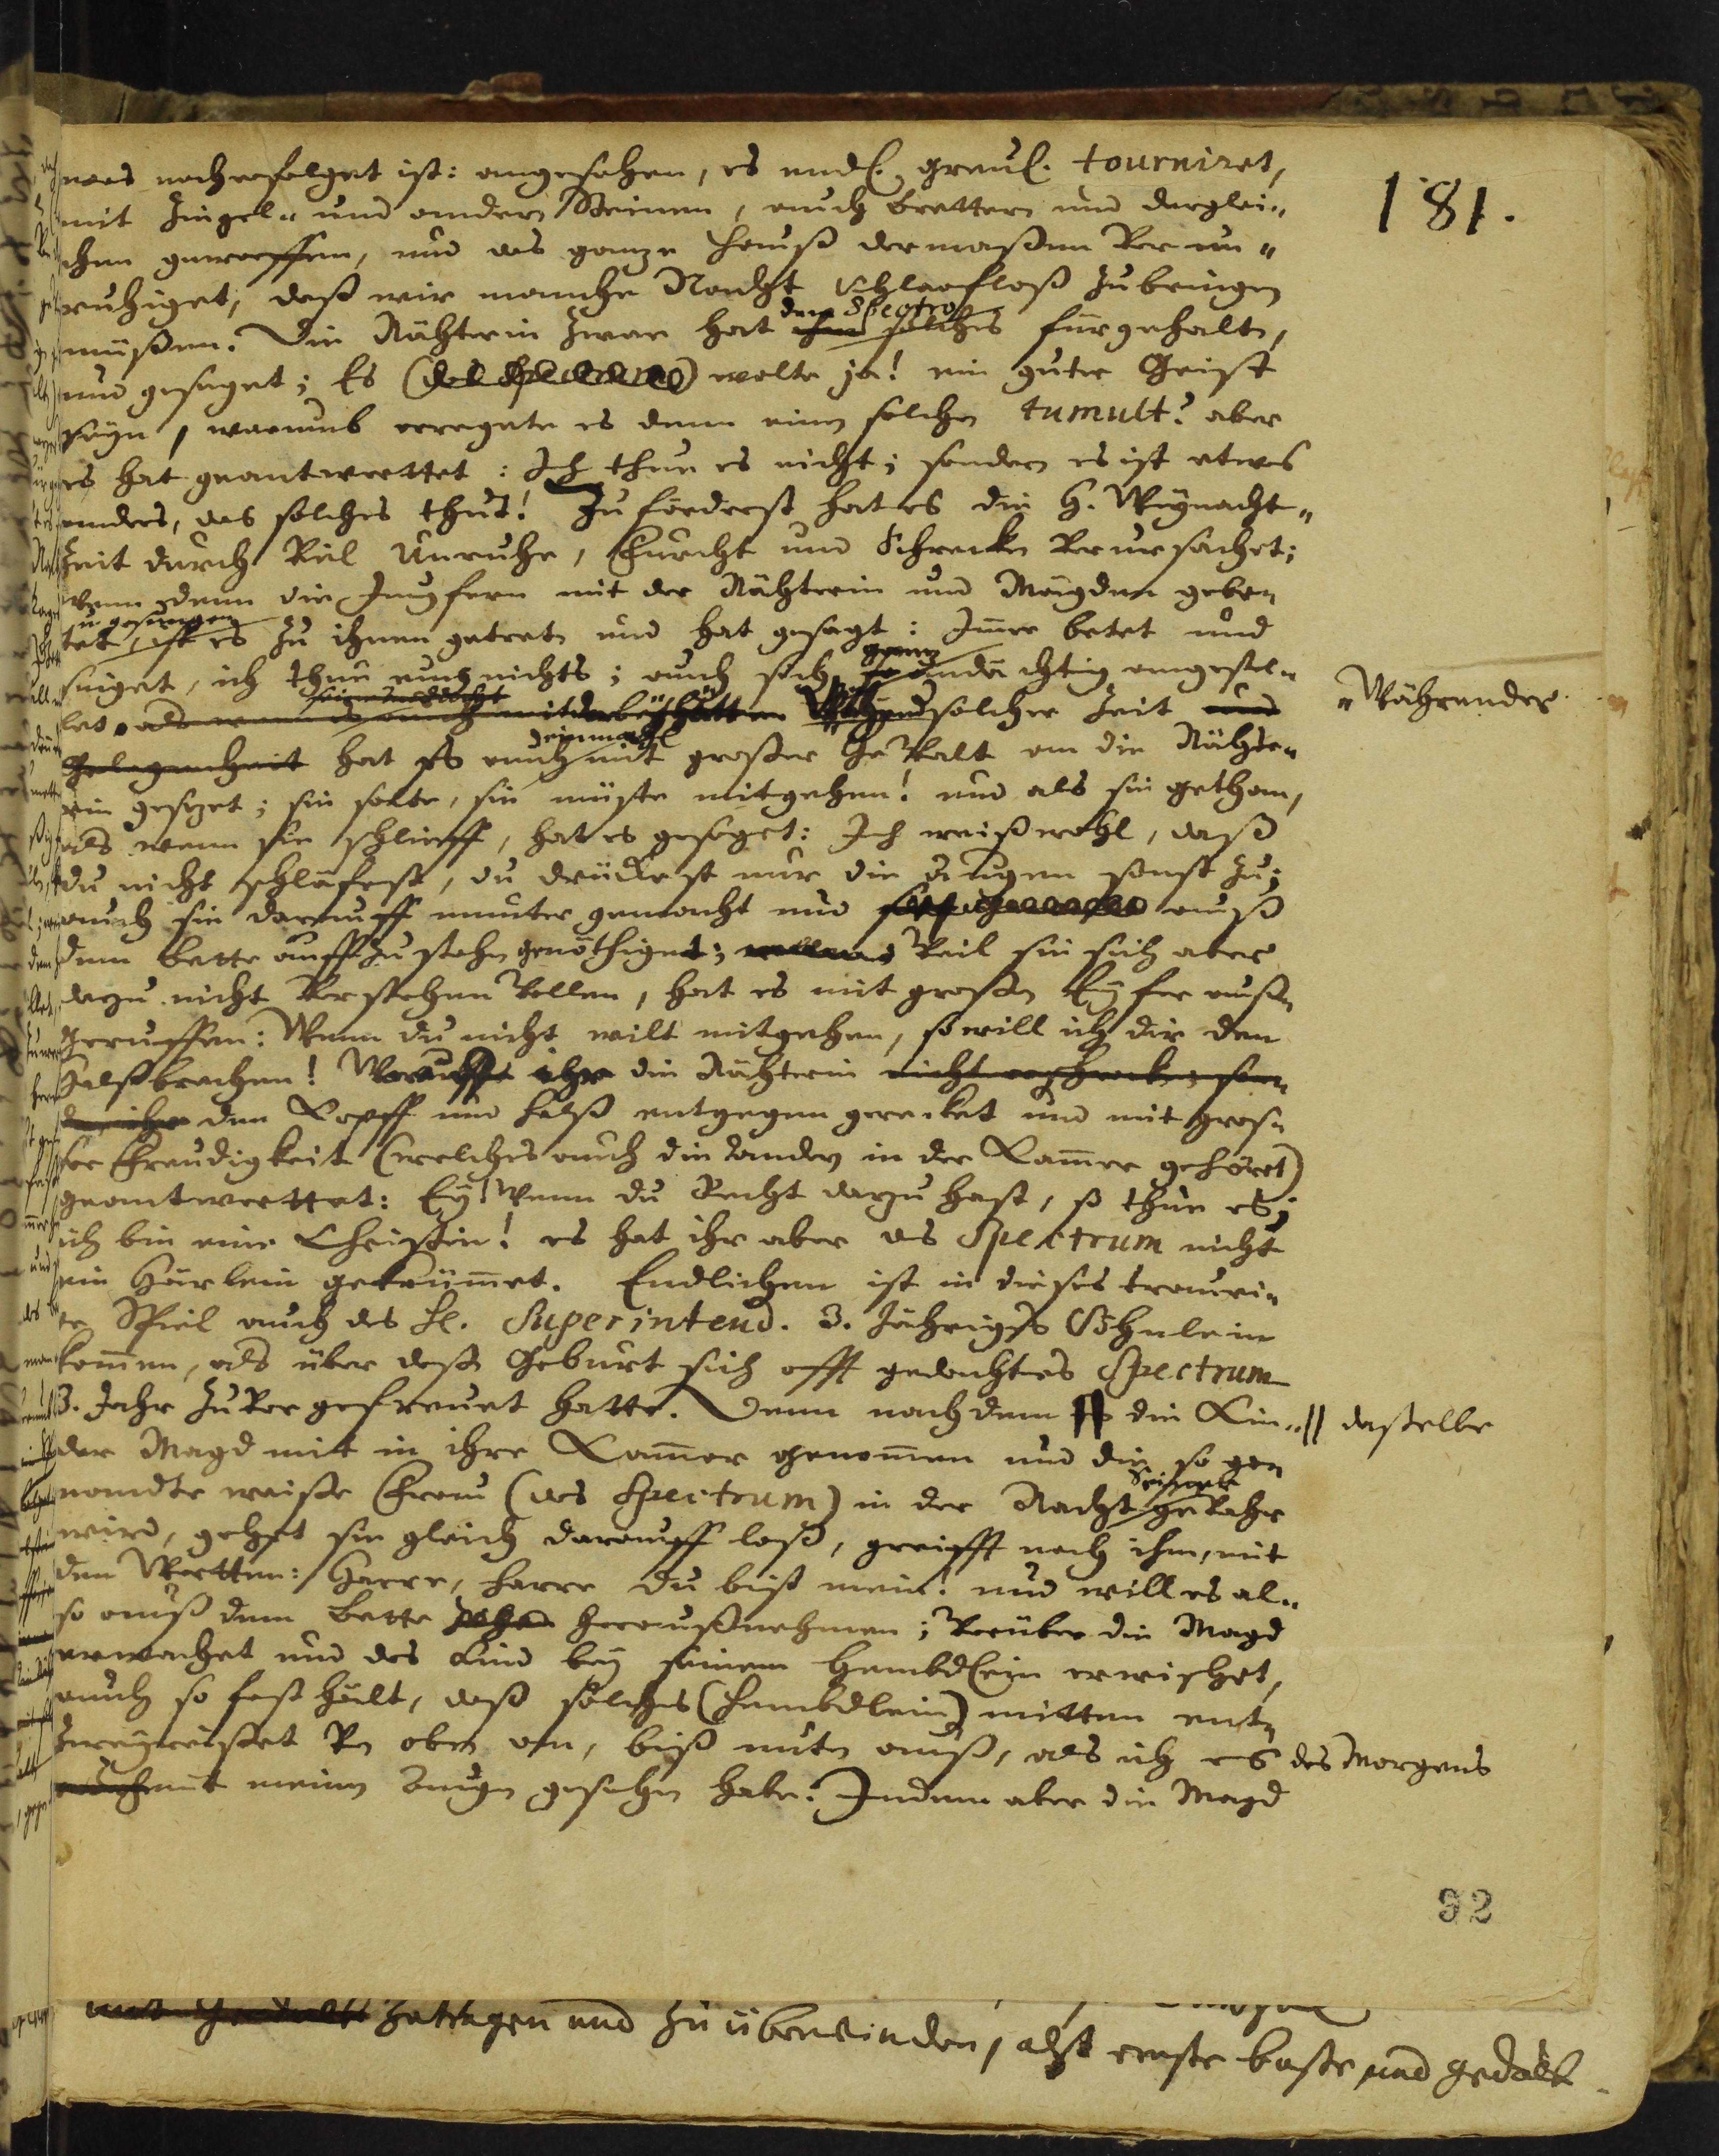 181.
was nacherfolget ist: angesehen, es endl. greul. tourniret,
mit Ziegel- und andern Steinen, auch brettern und derglei-
chen geworffen, und das ganze Hauß dermaßen verun-
ruhiget, daß wir manche Nacht schlaafloß zubringen
dem Spectro
müßen. Die Nähterin zwar hat ihm solches fürgehalten,
und gesaget; Es (das Spectrum) wolte ja! ein guter Geist
seyn, warumb erregete es denn einen solchen tumult? aber
es hat geantworttet: Ich thue es nicht; sondern es ist etwas
anders, das solches thut! Zuförderst hat es die H. Weynacht-
Zeit durch viel Unruhe, Furcht und Schrecken verursachet;
wenn denn die Jungfern mit der Nähterin und Mägden gebe-
u. gesungen
tet, ist es zu ihnen getreten und hat gesagt: Immer betet und
ganz
singet, ich thue euch nichts; auch sich so andächtig angestel-
seine Andacht
let, als wenn es auch mit dabey hätte. Während solcher Zeit und
"Währender
einmahl
Gelegenheit hat es auch mit großer Gewalt an die Nähte-
rin gesezet; sie solte, sie müste mitgehen! und als sie gethan,
als wenn sie schlieff, hat es gesaget: Ich weiß wohl, daß
du nicht schläfest, du drückest nur die Augen sonst zu;
auch sie darauff munter gemacht und auß
dem Bette auffzustehen genöthiget; weil sie sich aber
dazu nicht verstehen wollen, hat es mit großen Eyfer auß-
geruffen: Wenn du nicht wilt mitgehen, so will ich dir den
Halß brechen! Worauff ihr die Nähterin nicht erschrocken son-
dern ihr den Kopff und Halß entgegen gerecket und mit gros-
ser Freudigkeit (welches auch die andern in der Kammer gehöret)
geantworttet: Ey! wenn du Recht dazu hast, so thue es;
ich bin eine Christin! es hat ihr aber das Spectrum nicht
ein Härlein gekrümmet. Endlichen ist in dieses trauri-
te Spiel auch des H. Superintend. 3. Jähriges Söhnlein
kommen, als über deßen Geburt sich offt gedachtes Spectrum
3. Jahr zuvor gefreuet hatte. Denn nachdem es die Kin-
// daßelbe
der Magd mit in ihre Kammer genommen und die so ge-
Seiner
nandte weiße Frau (das Spectrum) in der Nacht gewahr
wird, gehet sie gleich darauff loß, greifft nach ihm, mit
den Wortten: Harre, harre du bist mein! und will es al-
so auß dem Bette herausnehmen; worüber die Magd
erwachet und das Kind bey seinem Hembdlein erwischet,
auch so fest hält, daß solches (Hembdlein) mitten ent-
zwey reißet von oben an, biß unten auß, als ich es des Morgens
auch mit meinen Augen gesehen habe. Indem aber die Magd
92
und zu überwinden, erste beste und